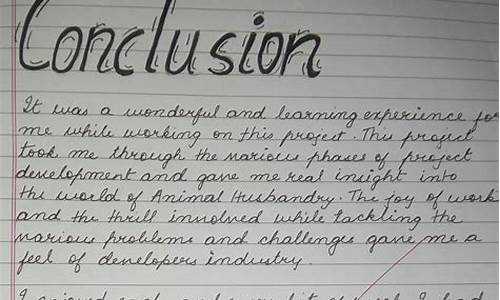 Conclusion
It was a wonderful and learning experience for
me while working on this project. This project
took me through the various phases of project
development and gave me real insight into
the world of Animal Husbandry. The joy of work
and the thrill involved while tackling the
various problems and challenges gave me a
feel of developers industry.